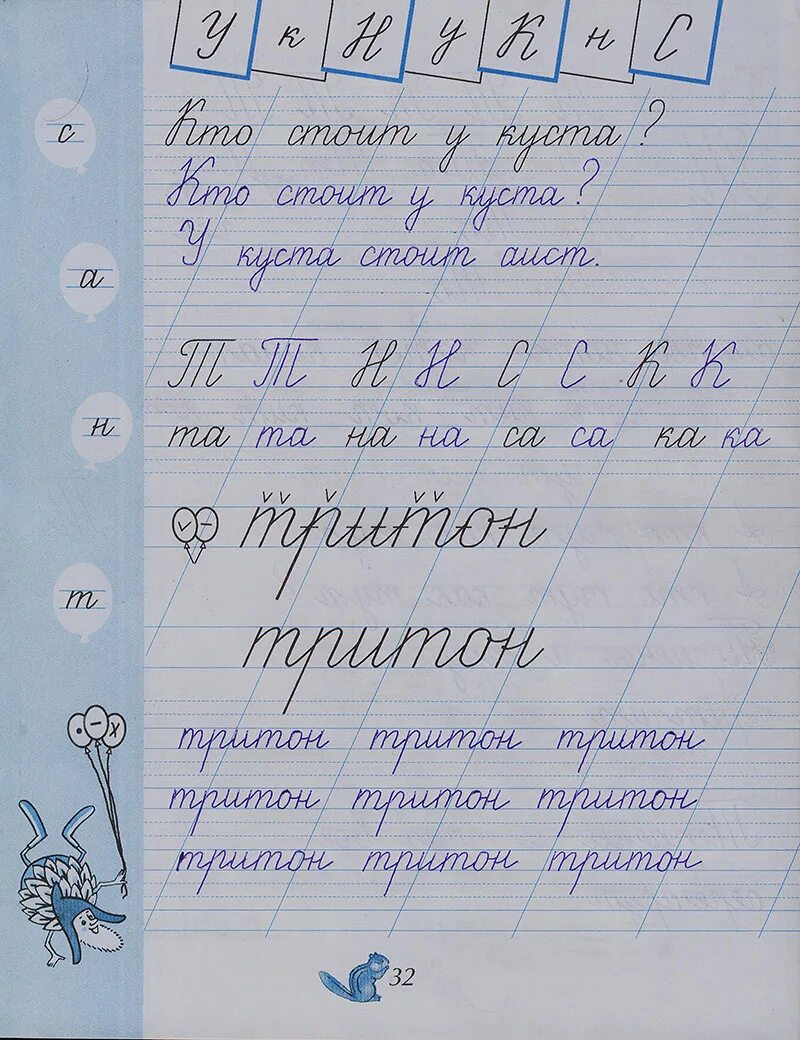 У к Н у К н С
с
Кто стоит у куста?
Кто стоит у куста?
У куста стоит аист.
а
Т Т Н Н С С К К
та та на на са са ка ка
н
тритон
т
тритон
тритон тритон тритон
тритон тритон тритон
тритон тритон тритон
32